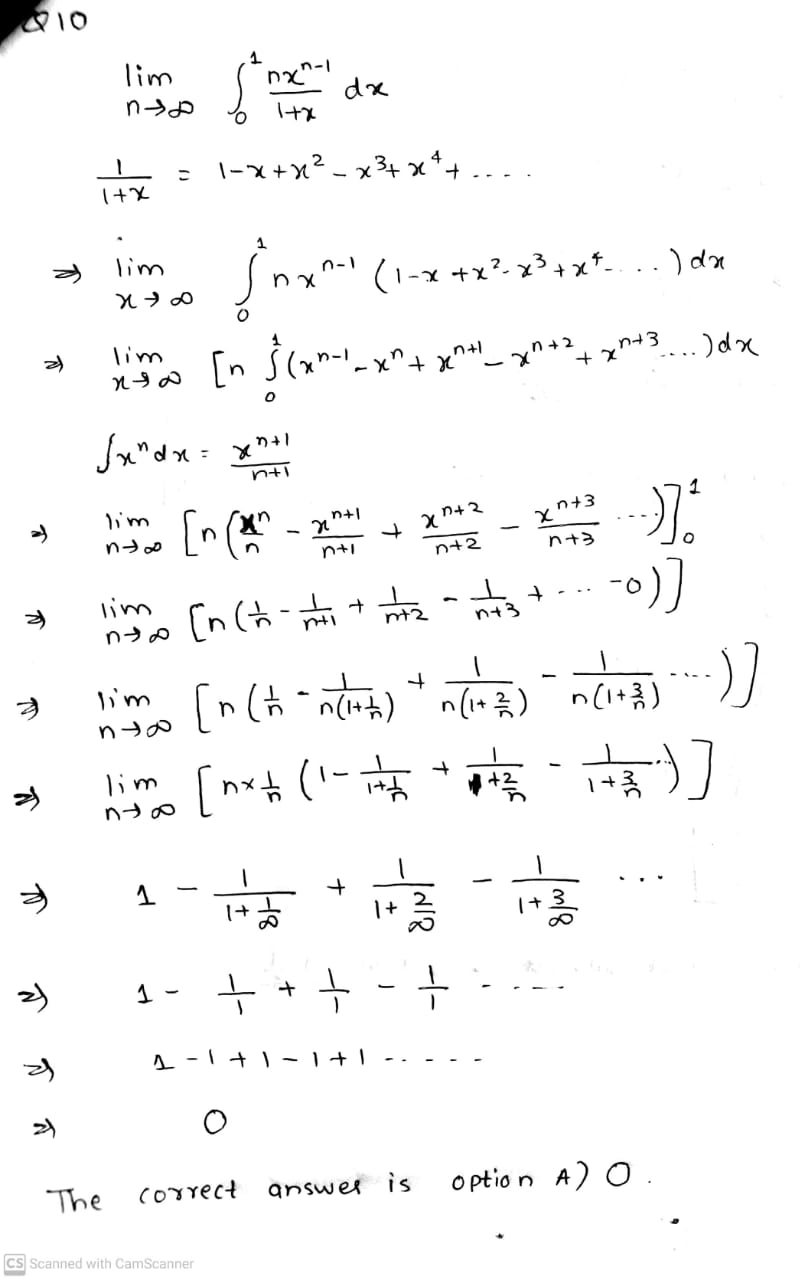 Q10
lim n→∞ ∫₀¹ nxⁿ⁻¹/(1+x) dx
1/(1+x) = 1-x+x²-x³+x⁴+....
⇒ lim x→∞ ∫₀¹ nxⁿ⁻¹ (1-x+x²-x³+x⁴-...) dx
⇒ lim x→∞ [n ∫₀¹ (xⁿ⁻¹-xⁿ+xⁿ⁺¹-xⁿ⁺²+xⁿ⁺³...)dx
∫xⁿdx = xⁿ⁺¹/(n+1)
⇒ lim n→∞ [n(xⁿ/n - xⁿ⁺¹/(n+1) + xⁿ⁺²/(n+2) - xⁿ⁺³/(n+3) ...)]₀¹
⇒ lim n→∞ [n(1/n - 1/(n+1) + 1/(n+2) - 1/(n+3) + .... -0)]
⇒ lim n→∞ [n(1/n - 1/(n(1+1/n)) + 1/(n(1+2/n)) - 1/(n(1+3/n)) ....)]
⇒ lim n→∞ [n×1/n (1 - 1/(1+1/n) + 1/(1+2/n) - 1/(1+3/n) ..)]
⇒ 1 - 1/(1+1/∞) + 1/(1+2/∞) - 1/(1+3/∞) ...
⇒ 1 - 1/1 + 1/1 - 1/1 - ....
⇒ 1-1+1-1+1 -.....
⇒ 0
The correct answer is option A) 0.
CS Scanned with CamScanner